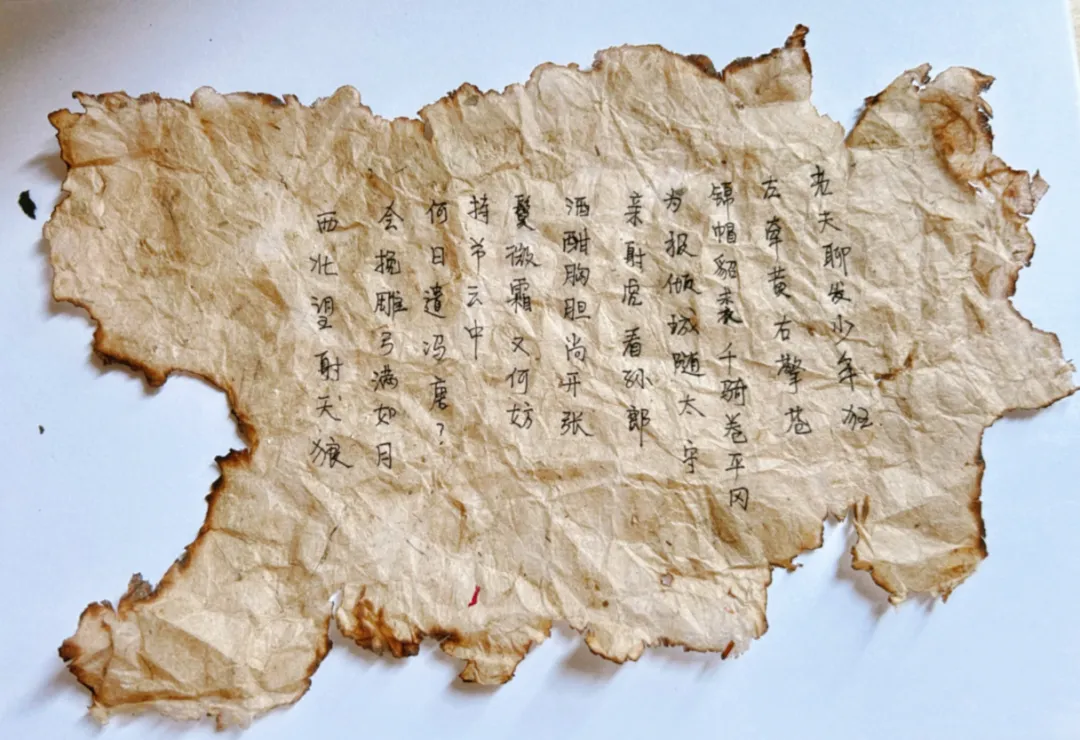 老夫聊发少年狂.
左牵黄右擎苍
锦帽貂裘千骑卷平冈
为报倾城随太守
亲射虎看孙郎
酒酣胸胆尚开张
鬓微霜又何妨
持节云中
何日遣冯唐?
会挽雕弓满如月
西北望射天狼